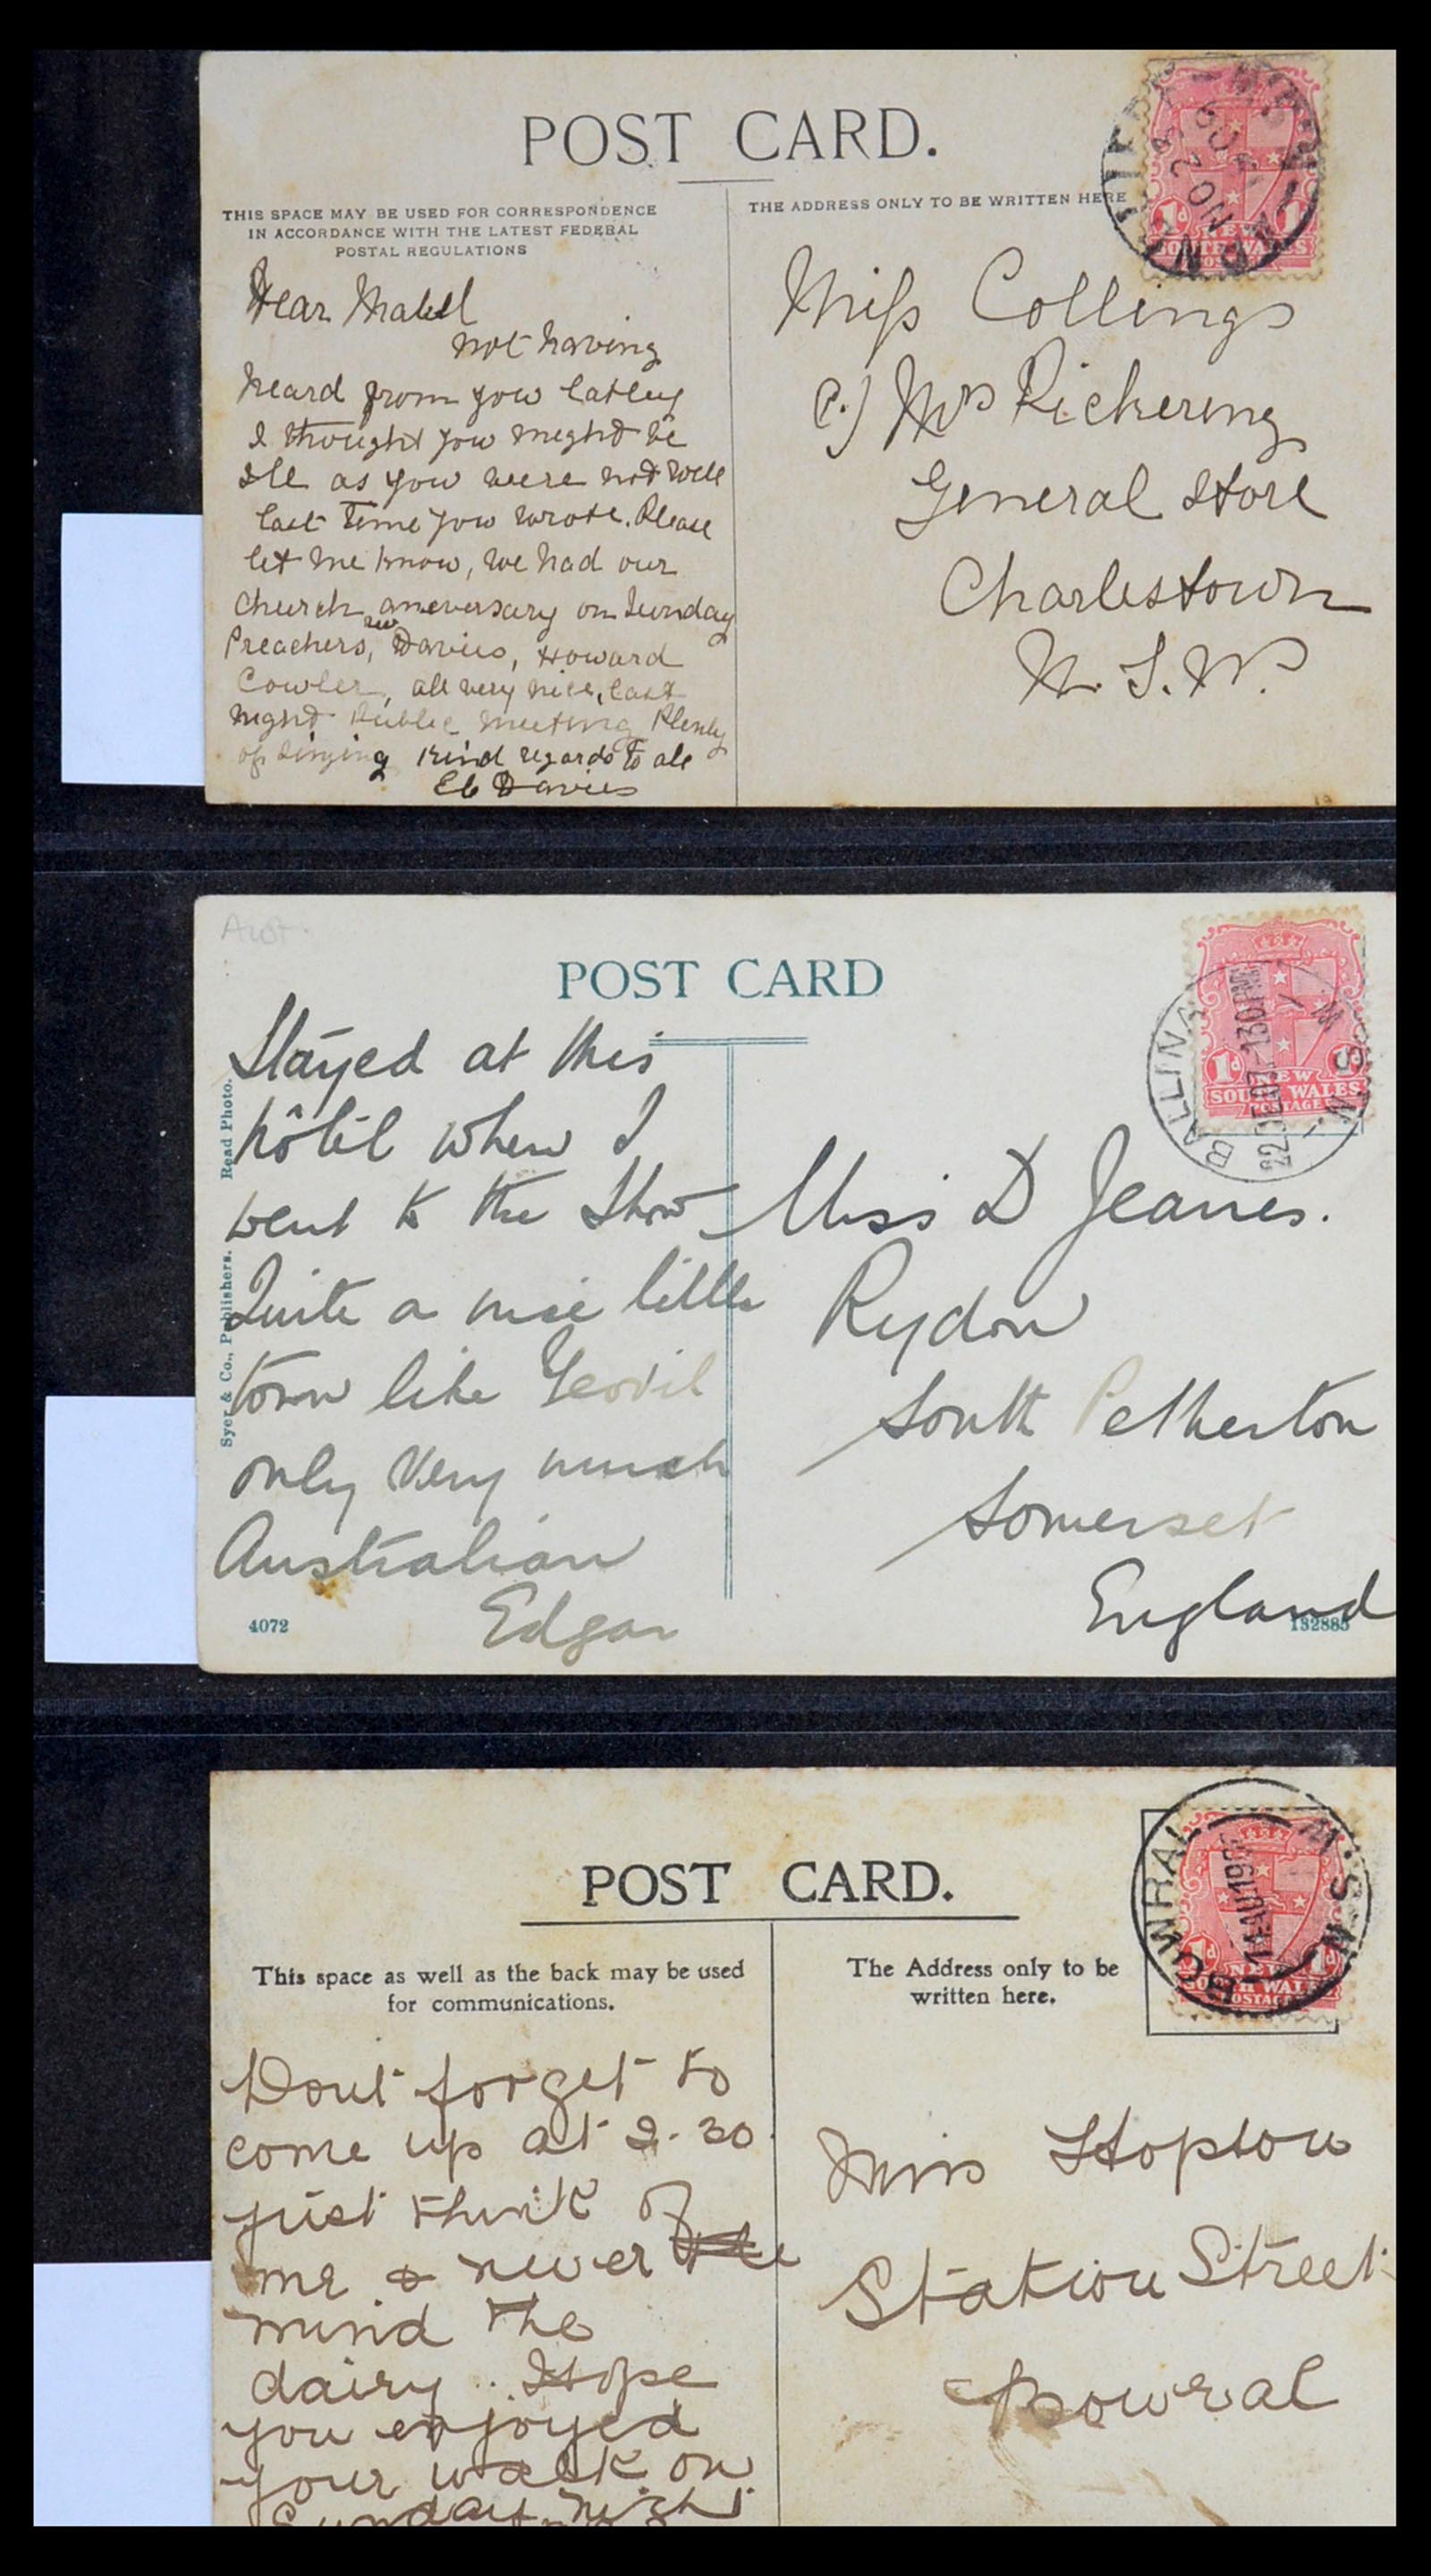 POST CARD.
THIS SPACE MAY BE USED FOR CORRESPONDENCE
IN ACCORDANCE WITH THE LATEST FEDERAL
POSTAL REGULATIONS
THE ADDRESS ONLY TO BE WRITTEN HERE
NEW
SOUTH WALES
Dear Mabel
not having
heard from you latley
I thought you might be
Ill as you were not well
last Time you wrote. Please
let me know, we had our
church aneversary on Sunday
Preachers, Rev Davies, Howard
Cowler, all very nice, last
night Public meeting Plenty
of singing Kind regards to all
Eb Davies
Miss Collings
C/ Mrs Pickering
General Store
Charlestown
N. S. W.
Aust.
POST CARD
Syer & Co., Publishers. Read Photo.
BALLINA N.S.W.
1d NEW 1d
SOUTH WALES
POSTAGE
Stayed at this
hôtel when I
went to the Show
Quite a nice little
town like Yeovil
only very much
Australian
Edgar
Miss D Jeanes.
Rydon
South Petherton
Somerset
England
4072
132885
POST CARD.
This space as well as the back may be used
for communications.
The Address only to be
written here.
BOWRAL N.S.W
NEW
SOUTH WALES
POSTAGE
Dont forget to
come up at 2.30
just think of
me & never
mind the
dairy.. Hope
you enjoyed
your walk on
Sunday night
Miss Hopton
Station Street
Bowral